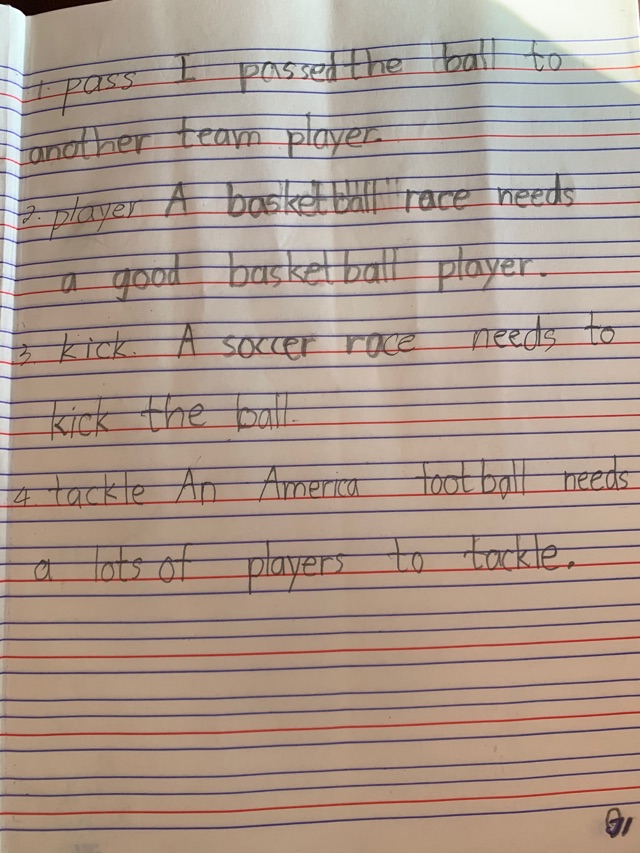 1. pass I passed the ball to
another team player.
2. player A basketball race needs
a good basketball player.
3. kick. A soccer race needs to
kick the ball.
4. tackle An America football needs
a lots of players to tackle.